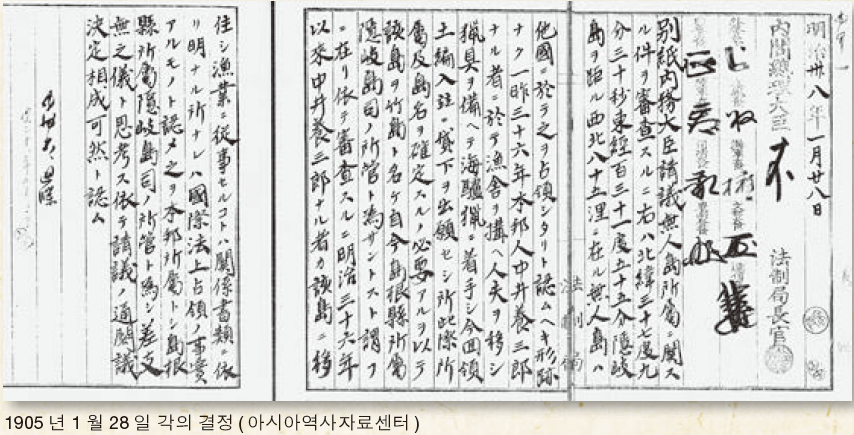 明治卅八年一月廿八日
内閣總理大臣
法制局長官
別紙内務大臣請議無人島所屬ニ關ス
ル件ヲ審査スルニ右ハ北緯三十七度九
分三十秒東經百三十一度五十五分隱岐
島ヲ距ル西北八十五浬ニ在ル無人島ハ
法制局
他國ニ於テ之ヲ占領シタリト認ムヘキ形跡
ナク一昨三十六年本邦人中井養三郎
ナル者ニ於テ漁舎ヲ搆ヘ人夫ヲ移シ
獵具ヲ備ヘテ海驢獵ニ着手シ今回領
土編入並ニ貸下ヲ出願セシ所此際所
屬及島名ヲ確定スルノ必要アルヲ以テ
該島ヲ竹島ト名ケ自今島根縣所屬
隱岐島司ノ所管ト為サントスト謂フ
ニ在リ依テ審査スルニ明治三十六年
以來中井養三郎ナル者カ該島ニ移
住シ漁業ニ從事セルコトハ關係書類ニ依
リ明ナル所ナレハ國際法上占領ノ事實
アルモノト認メ之ヲ本邦所屬トシ島根
縣所屬隱岐島司ノ所管ト為シ差支
無之儀ト思考ス依テ請議ノ通閣議
決定相成可然ト認ム
1905 년 1 월 28 일 각의 결정 ( 아시아역사자료센터 )